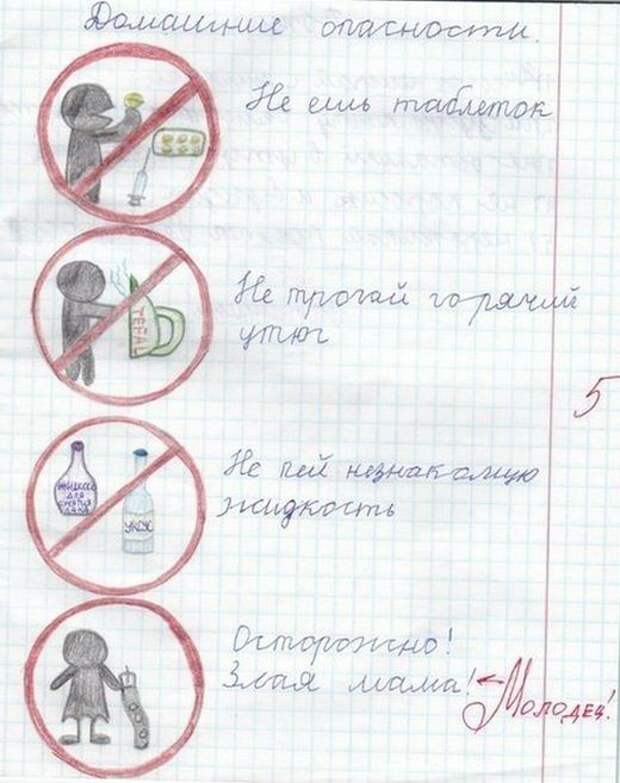 Домашние опасности.
Не ешь таблеток
Не трогай горячий
TEFAL
утюг
5
Не пей незнакомую
жидкость
жидкость
для
снятия
лака
уксус
Осторожно!
Злая мама!
Молодец!